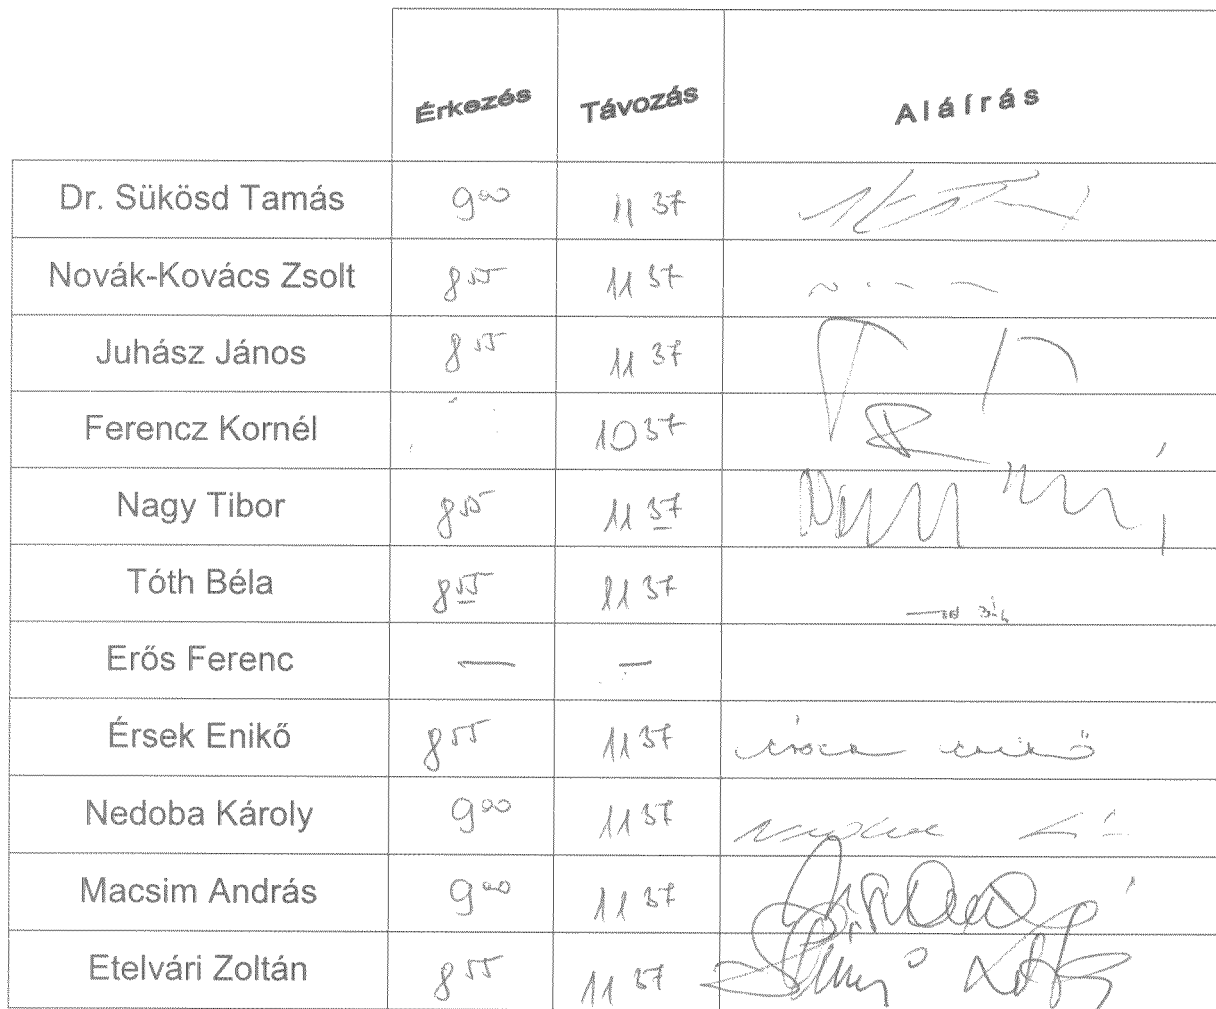 Érkezés Távozás Aláírás
Dr. Sükösd Tamás 9⁰⁰ 11 37
Novák-Kovács Zsolt 8⁵⁵ 11 37
Juhász János 8⁵⁵ 11 37
Ferencz Kornél 10 37
Nagy Tibor 8⁵⁵ 11 37
Tóth Béla 8⁵⁵ 11 37
Erős Ferenc — —
Érsek Enikő 8⁵⁵ 11 37 Érsek Enikő
Nedoba Károly 9⁰⁰ 11 37
Macsim András 9⁰⁰ 11 37
Etelvári Zoltán 8⁵⁵ 11 37